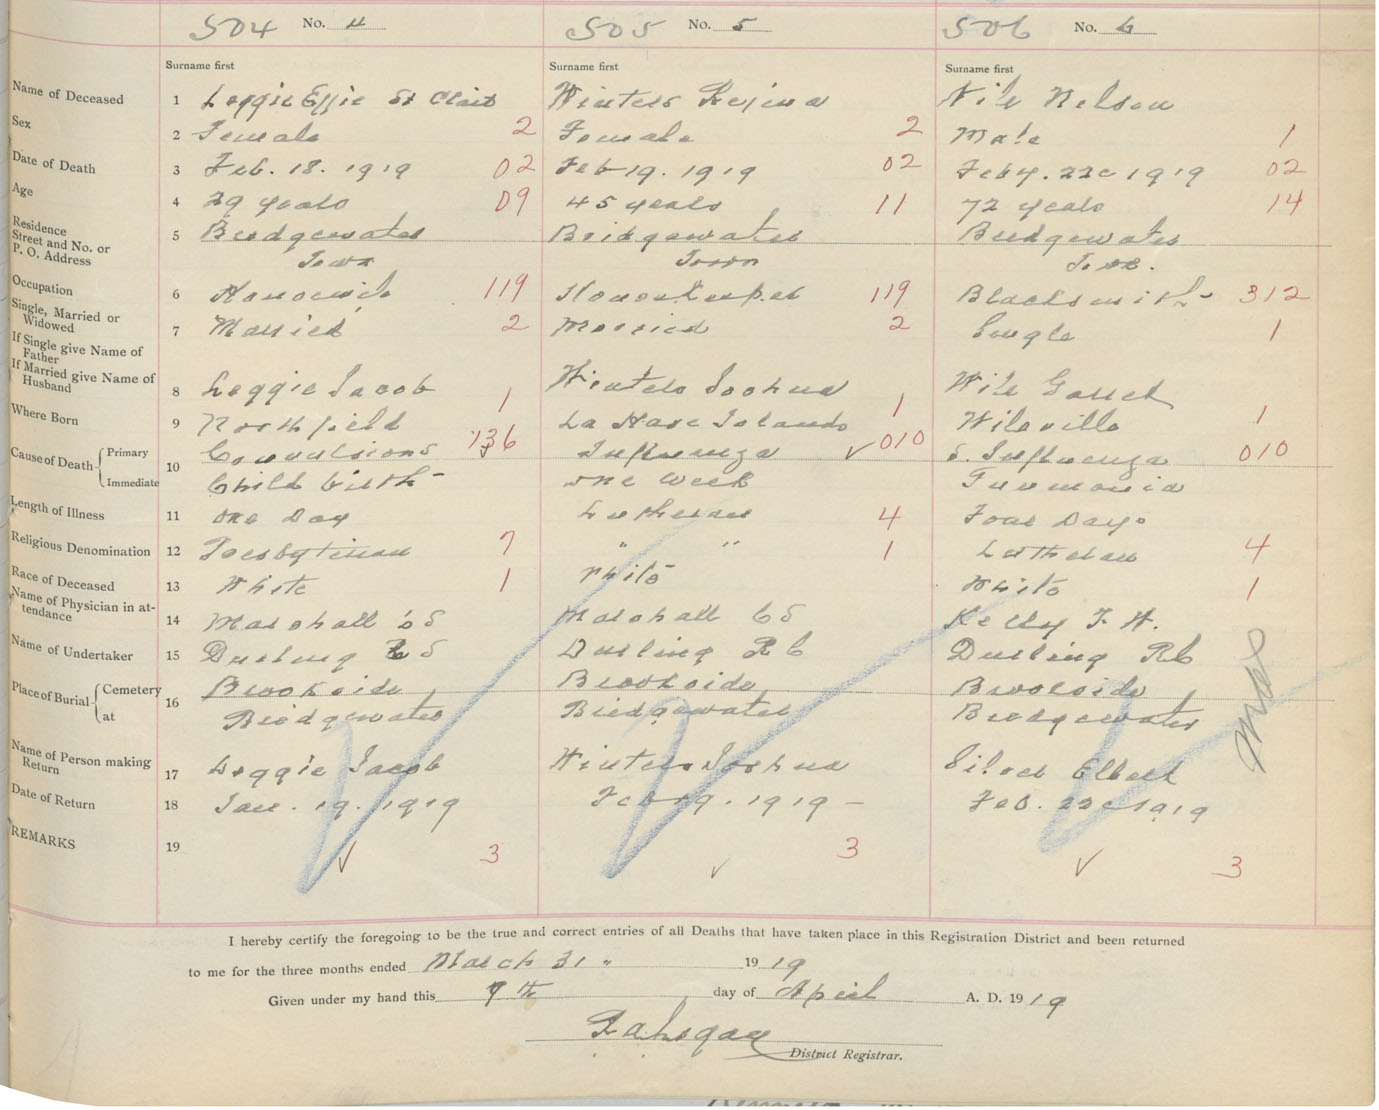 504 No. 4 505 No. 5 506 No. 6
Surname first Surname first Surname first
Name of Deceased 1 Leggie Effie St Clair Winters Regina Wile Nelson
Sex 2 Female 2 Female 2 Male 1
Date of Death 3 Feb. 18. 1919 02 Feb 19. 1919 02 Feby. 22d 1919 02
Age 4 29 years 09 45 years 11 72 years 14
Residence
Street and No. or
P. O. Address
5 Bridgewater Bridgewater Bridgewater
Town Town Town.
Occupation 6 Housewife 119 Housekeeper 119 Blacksmith 312
Single, Married or
Widowed
7 Married 2 Married 2 Single 1
If Single give Name of
Father
If Married give Name of
Husband
8 Leggie Jacob 1 Winters Joshua 1 Wile Garret
Where Born 9 Northfield La Have Islands Wileville 1
Cause of Death Primary 10 Convulsions 136 Influenza ✓ 010 S. Influenza 010
Immediate Child birth one week Pneumonia
Length of Illness 11 one Day Lutheran 4 Four Days
Religious Denomination 12 Presbyterian 7 " " 1 Lutheran 4
Race of Deceased 13 White 1 White White 1
Name of Physician in at-
tendance
14 Marshall C S Marshall C S Kelly F. H.
Name of Undertaker 15 Durling R S Durling R C Durling R C
Place of Burial Cemetery 16 Brookside Brookside Brookside
at Bridgewater Bridgewater Bridgewater
Name of Person making
Return
17 Leggie Jacob Winters Joshua Silver Elbert
Date of Return 18 Jan. 19. 1919 Feb 19. 1919 – Feb. 22d 1919
REMARKS 19 ✓ 3 ✓ 3 ✓ 3
I hereby certify the foregoing to be the true and correct entries of all Deaths that have taken place in this Registration District and been returned
to me for the three months ended March 31 " 1919
Given under my hand this 9th day of April A. D. 1919
District Registrar.